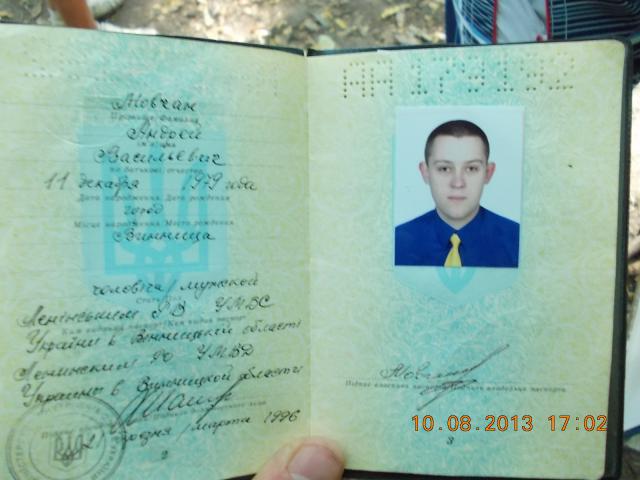 Мовчан
Прізвище/Фамилия
Андрей
Ім'я/Имя
Васильевич
По батькові/Отчество
11 декабря 1979 года
Дата народження/Дата рождения
город
Місце народження/Место рождения
Винница
чоловіча/мужской
Стать/Пол
Ленінським РВ УМВС
Ким виданий паспорт/Кем выдан паспорт
України в Вінницькій області
Ленинским РО УМВД
Украины в Винницкой области
березня/марта 1996
2
Підпис власника паспорта/Подпись владельца паспорта
3
10.08.2013 17:02